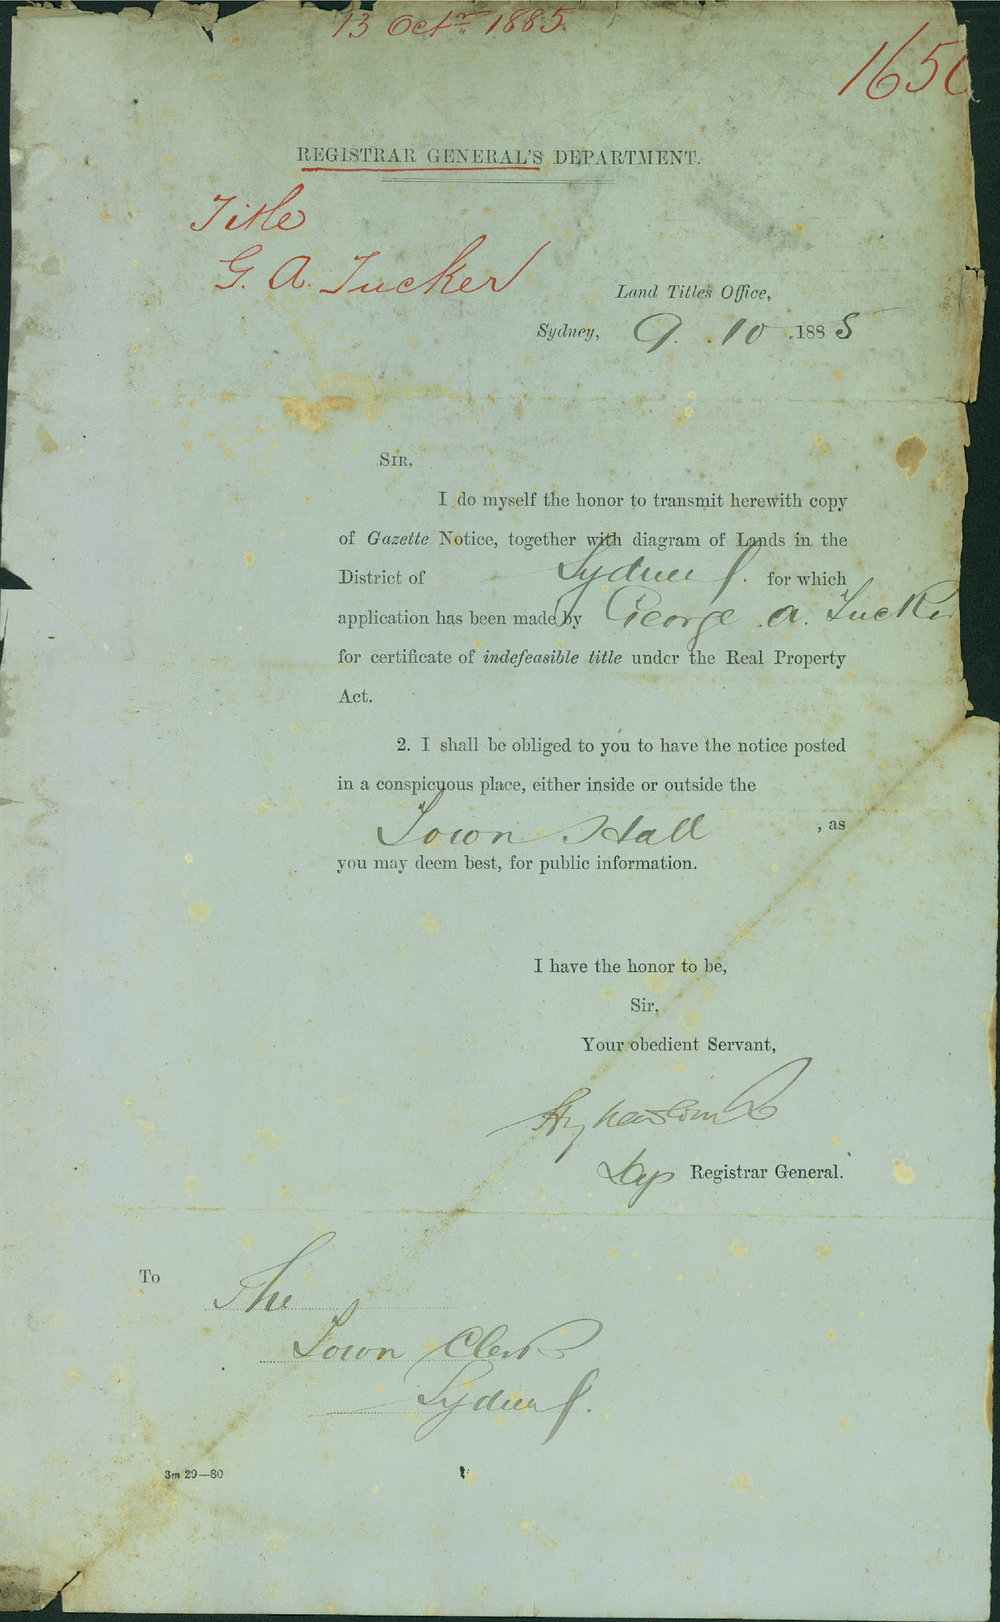 13 Octr. 1885.
1650
REGISTRAR GENERAL'S DEPARTMENT.
Title
G. A. Tucker
Land Titles Office,
Sydney, 9. 10 .1885
SIR,
I do myself the honor to transmit herewith copy
of Gazette Notice, together with diagram of Lands in the
District of Sydney. for which
application has been made by George A. Tucker
for certificate of indefeasible title under the Real Property
Act.
2. I shall be obliged to you to have the notice posted
in a conspicuous place, either inside or outside the
Town Hall , as
you may deem best, for public information.
I have the honor to be,
Sir,
Your obedient Servant,
Dep Registrar General.
To The
Town Clerk
Sydney.
3m 29—80